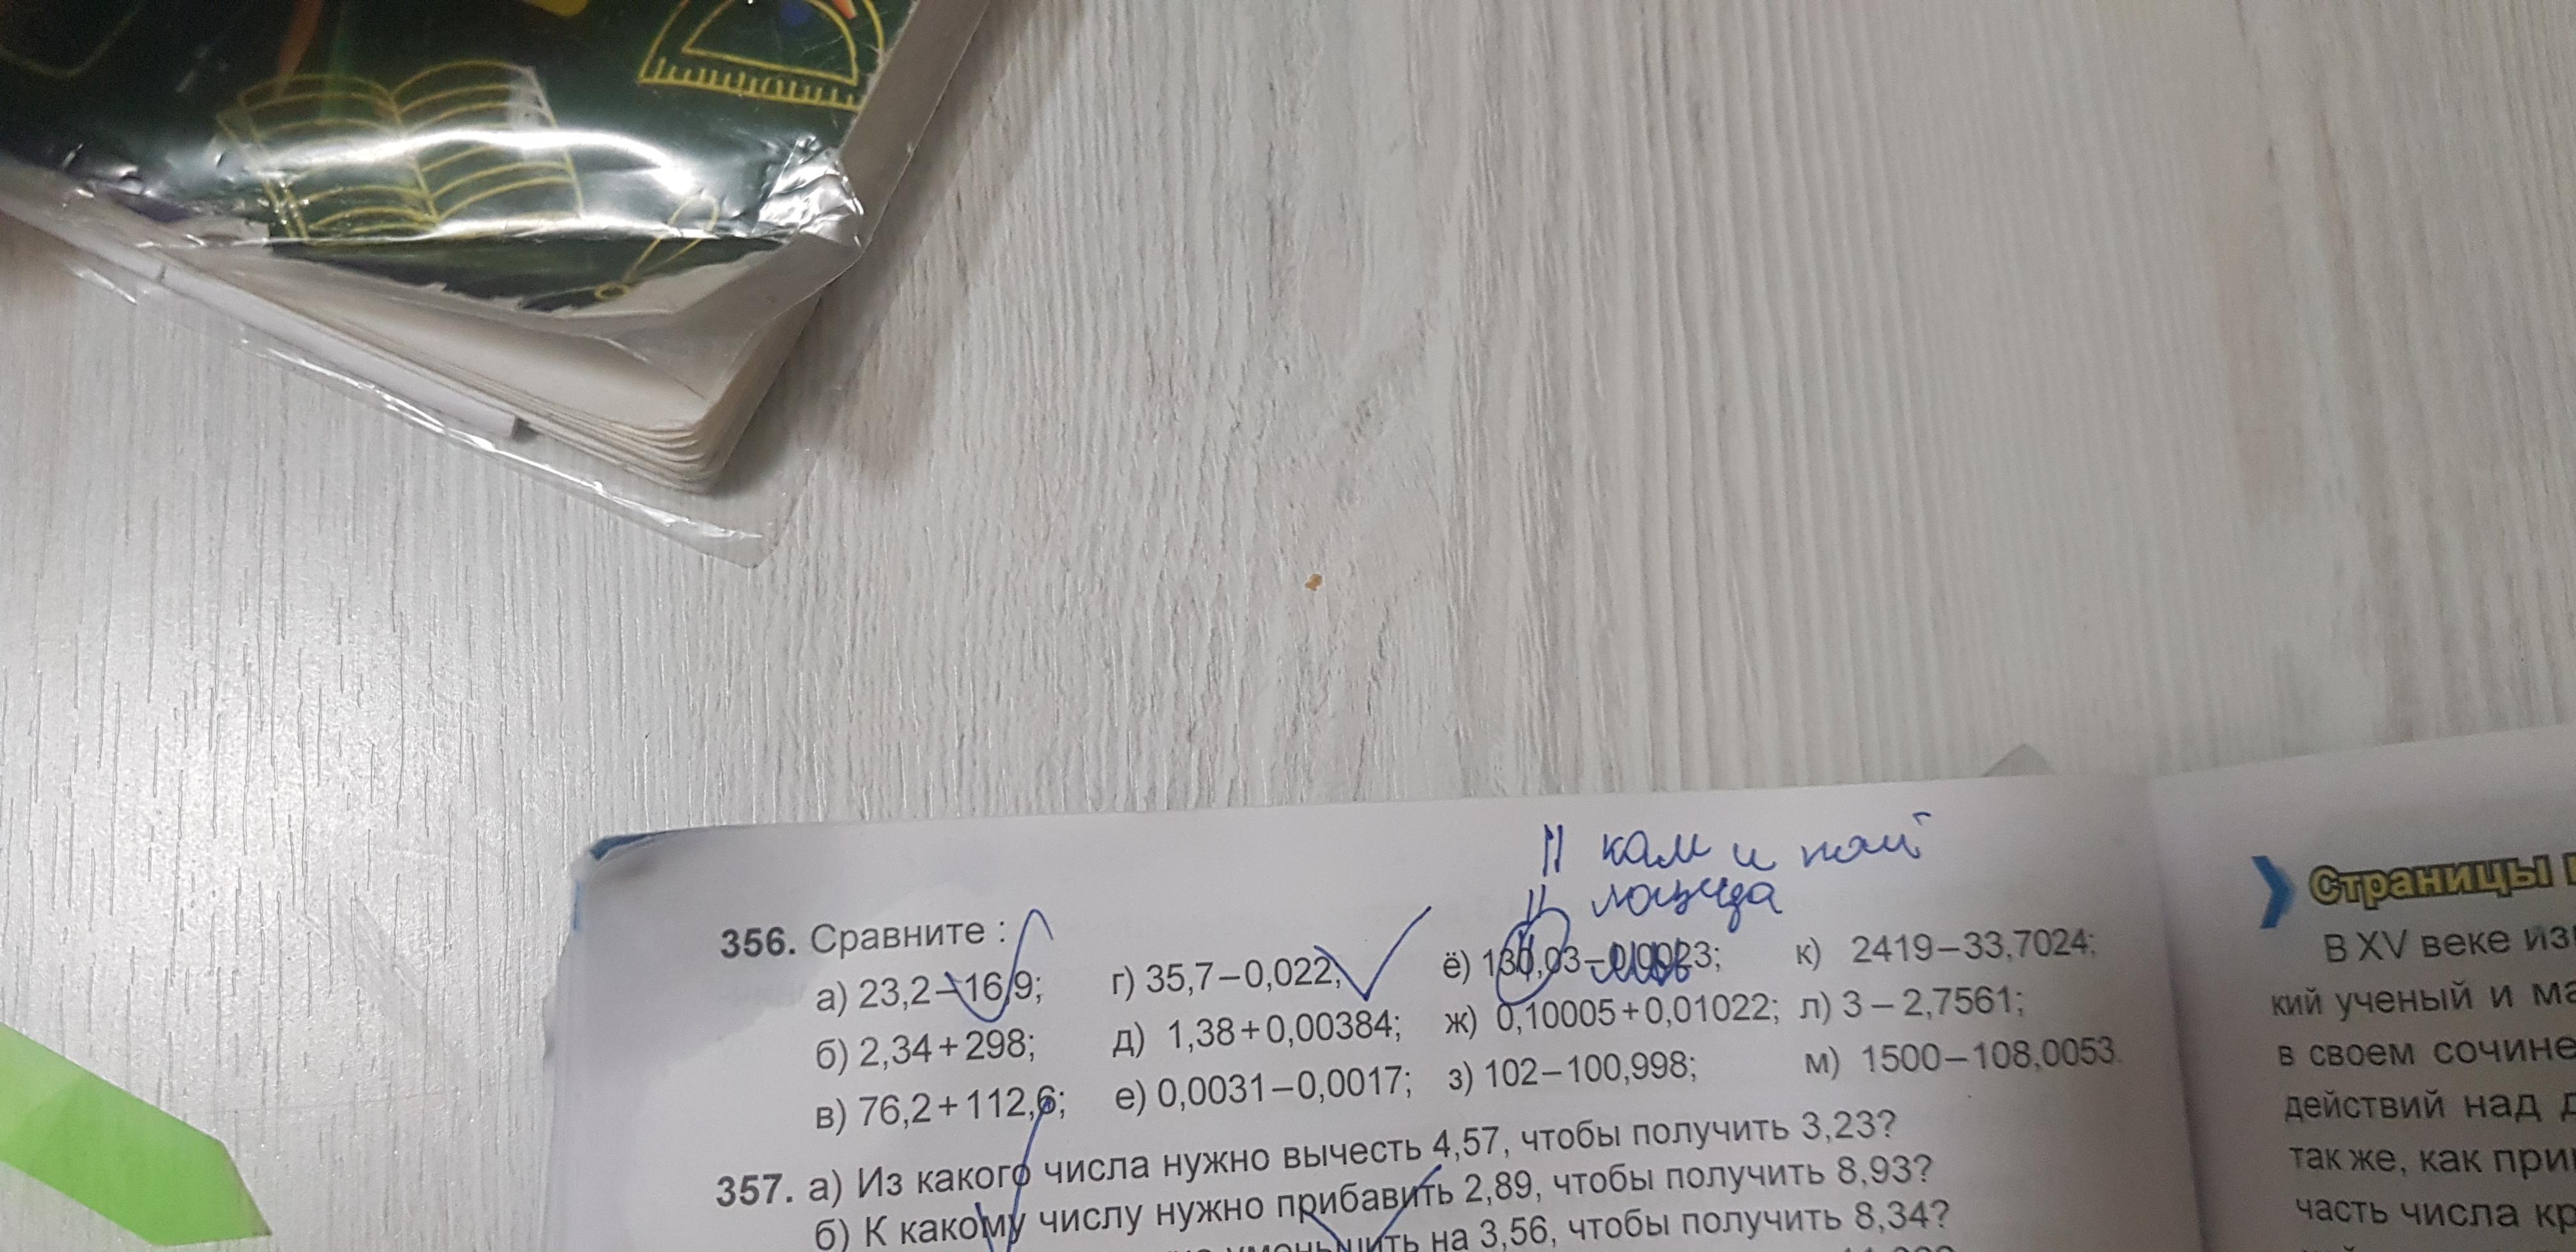 || кам и пай
|| лошуда
356. Сравните :
а) 23,2–16,9; г) 35,7–0,022; ё) 130,03–0,0023; к) 2419–33,7024;
б) 2,34+298; д) 1,38+0,00384; ж) 0,10005+0,01022; л) 3 – 2,7561;
в) 76,2+112,6; е) 0,0031–0,0017; з) 102–100,998; м) 1500–108,0053.
357. а) Из какого числа нужно вычесть 4,57, чтобы получить 3,23?
б) К какому числу нужно прибавить 2,89, чтобы получить 8,93?
уменьшить на 3,56, чтобы получить 8,34?
Страницы
В XV веке
кий ученый и
в своем
действий над
так же, как
часть числа